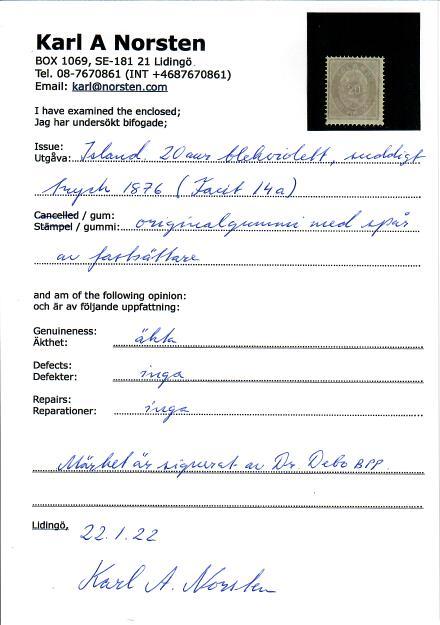 Karl A Norsten
BOX 1069, SE-181 21 Lidingö
Tel. 08-7670861 (INT +4687670861)
Email: karl@norsten.com
20
I have examined the enclosed;
Jag har undersökt bifogade;
Issue:
Utgåva: Island 20 aur blekviolett, suddigt
tryck 1876 (Facit 14a)
Cancelled / gum:
Stämpel / gummi: originalgummi med spår
av fastsättare
and am of the following opinion:
och är av följande uppfattning:
Genuineness:
Äkthet: äkta
Defects:
Defekter: inga
Repairs:
Reparationer: inga
Märket är signerat av Dr. Debo BPP.
Lidingö, 22.1.22
Karl A. Norsten